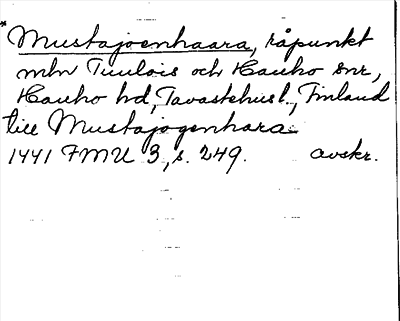 * Mustajoenhaara, råpunkt
mln Tuulois och Hauho snr,
Hauho hd, Tavastehusl., Finland
till Mustajogenhara
1441 FMU 3, s. 249. avskr.